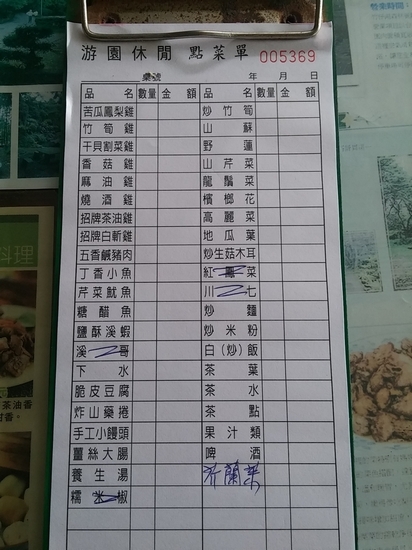 游園休閒 點菜單 005369
桌號 年 月 日
品名 數量 金額 品名 數量 金額
苦瓜鳳梨雞 炒竹筍
竹筍雞 山蘇
干貝割菜雞 野蓮
香菇雞 山芹菜
麻油雞 龍鬚菜
燒酒雞 檳榔花
招牌茶油雞 高麗菜
招牌白斬雞 地瓜葉
五香鹹豬肉 炒生菇木耳
丁香小魚 紅鳳菜
芹菜魷魚 川七
糖醋魚 炒麵
鹽酥溪蝦 炒米粉
溪哥 白(炒)飯
下水 茶葉
脆皮豆腐 茶水
炸山藥捲 茶點
手工小饅頭 果汁類
薑絲大腸 啤酒
養生湯 芥蘭菜
糯米椒
料理
茶油香